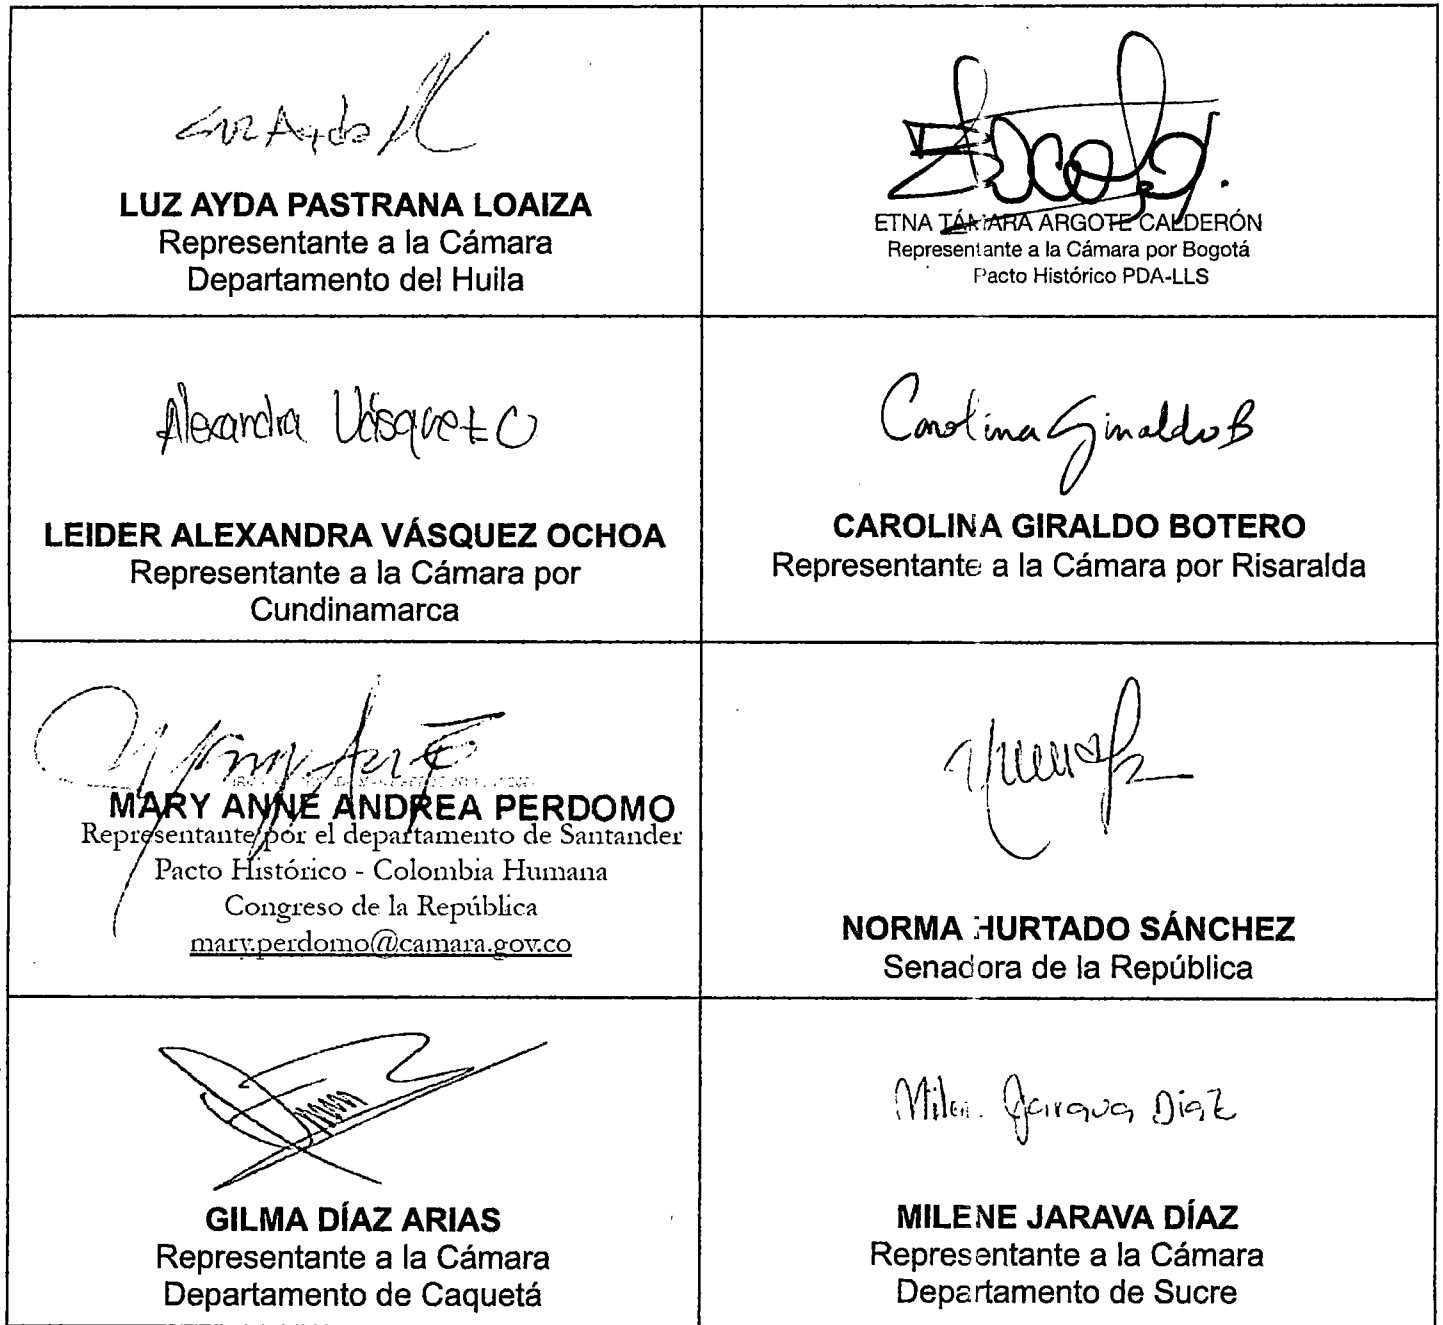 Luz Ayda
LUZ AYDA PASTRANA LOAIZA
Representante a la Cámara
Departamento del Huila
ETNA TÁMARA ARGOTE CALDERÓN
Representante a la Cámara por Bogotá
Pacto Histórico PDA-LLS
Alexandra Vásquez O
LEIDER ALEXANDRA VÁSQUEZ OCHOA
Representante a la Cámara por
Cundinamarca
Carolina Giraldo B
CAROLINA GIRALDO BOTERO
Representante a la Cámara por Risaralda
MARY ANNE ANDREA PERDOMO
Representante por el departamento de Santander
Pacto Histórico - Colombia Humana
Congreso de la República
mary.perdomo@camara.gov.co
NORMA HURTADO SÁNCHEZ
Senadora de la República
GILMA DÍAZ ARIAS
Representante a la Cámara
Departamento de Caquetá
Jarava Diaz
MILENE JARAVA DÍAZ
Representante a la Cámara
Departamento de Sucre